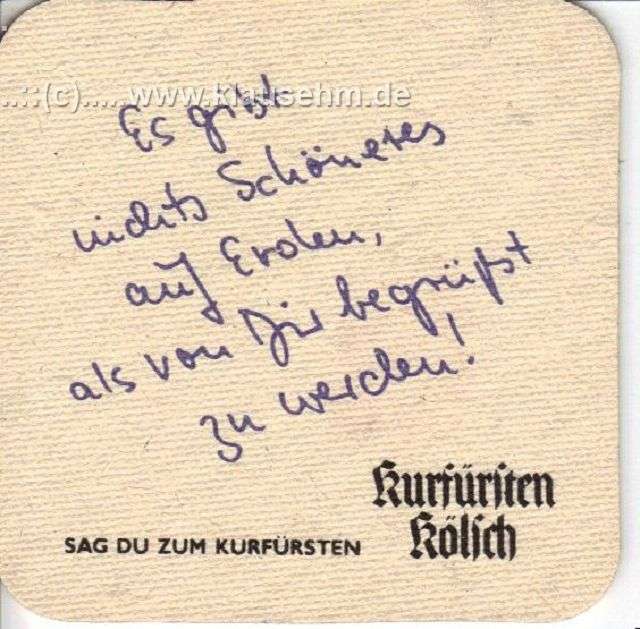 ..::(c)..... www.klausehm.de
Es gibt
nichts Schöneres
auf Erden,
als von Dir begrüßt
zu werden!
Kurfürsten
Kölsch
SAG DU ZUM KURFÜRSTEN